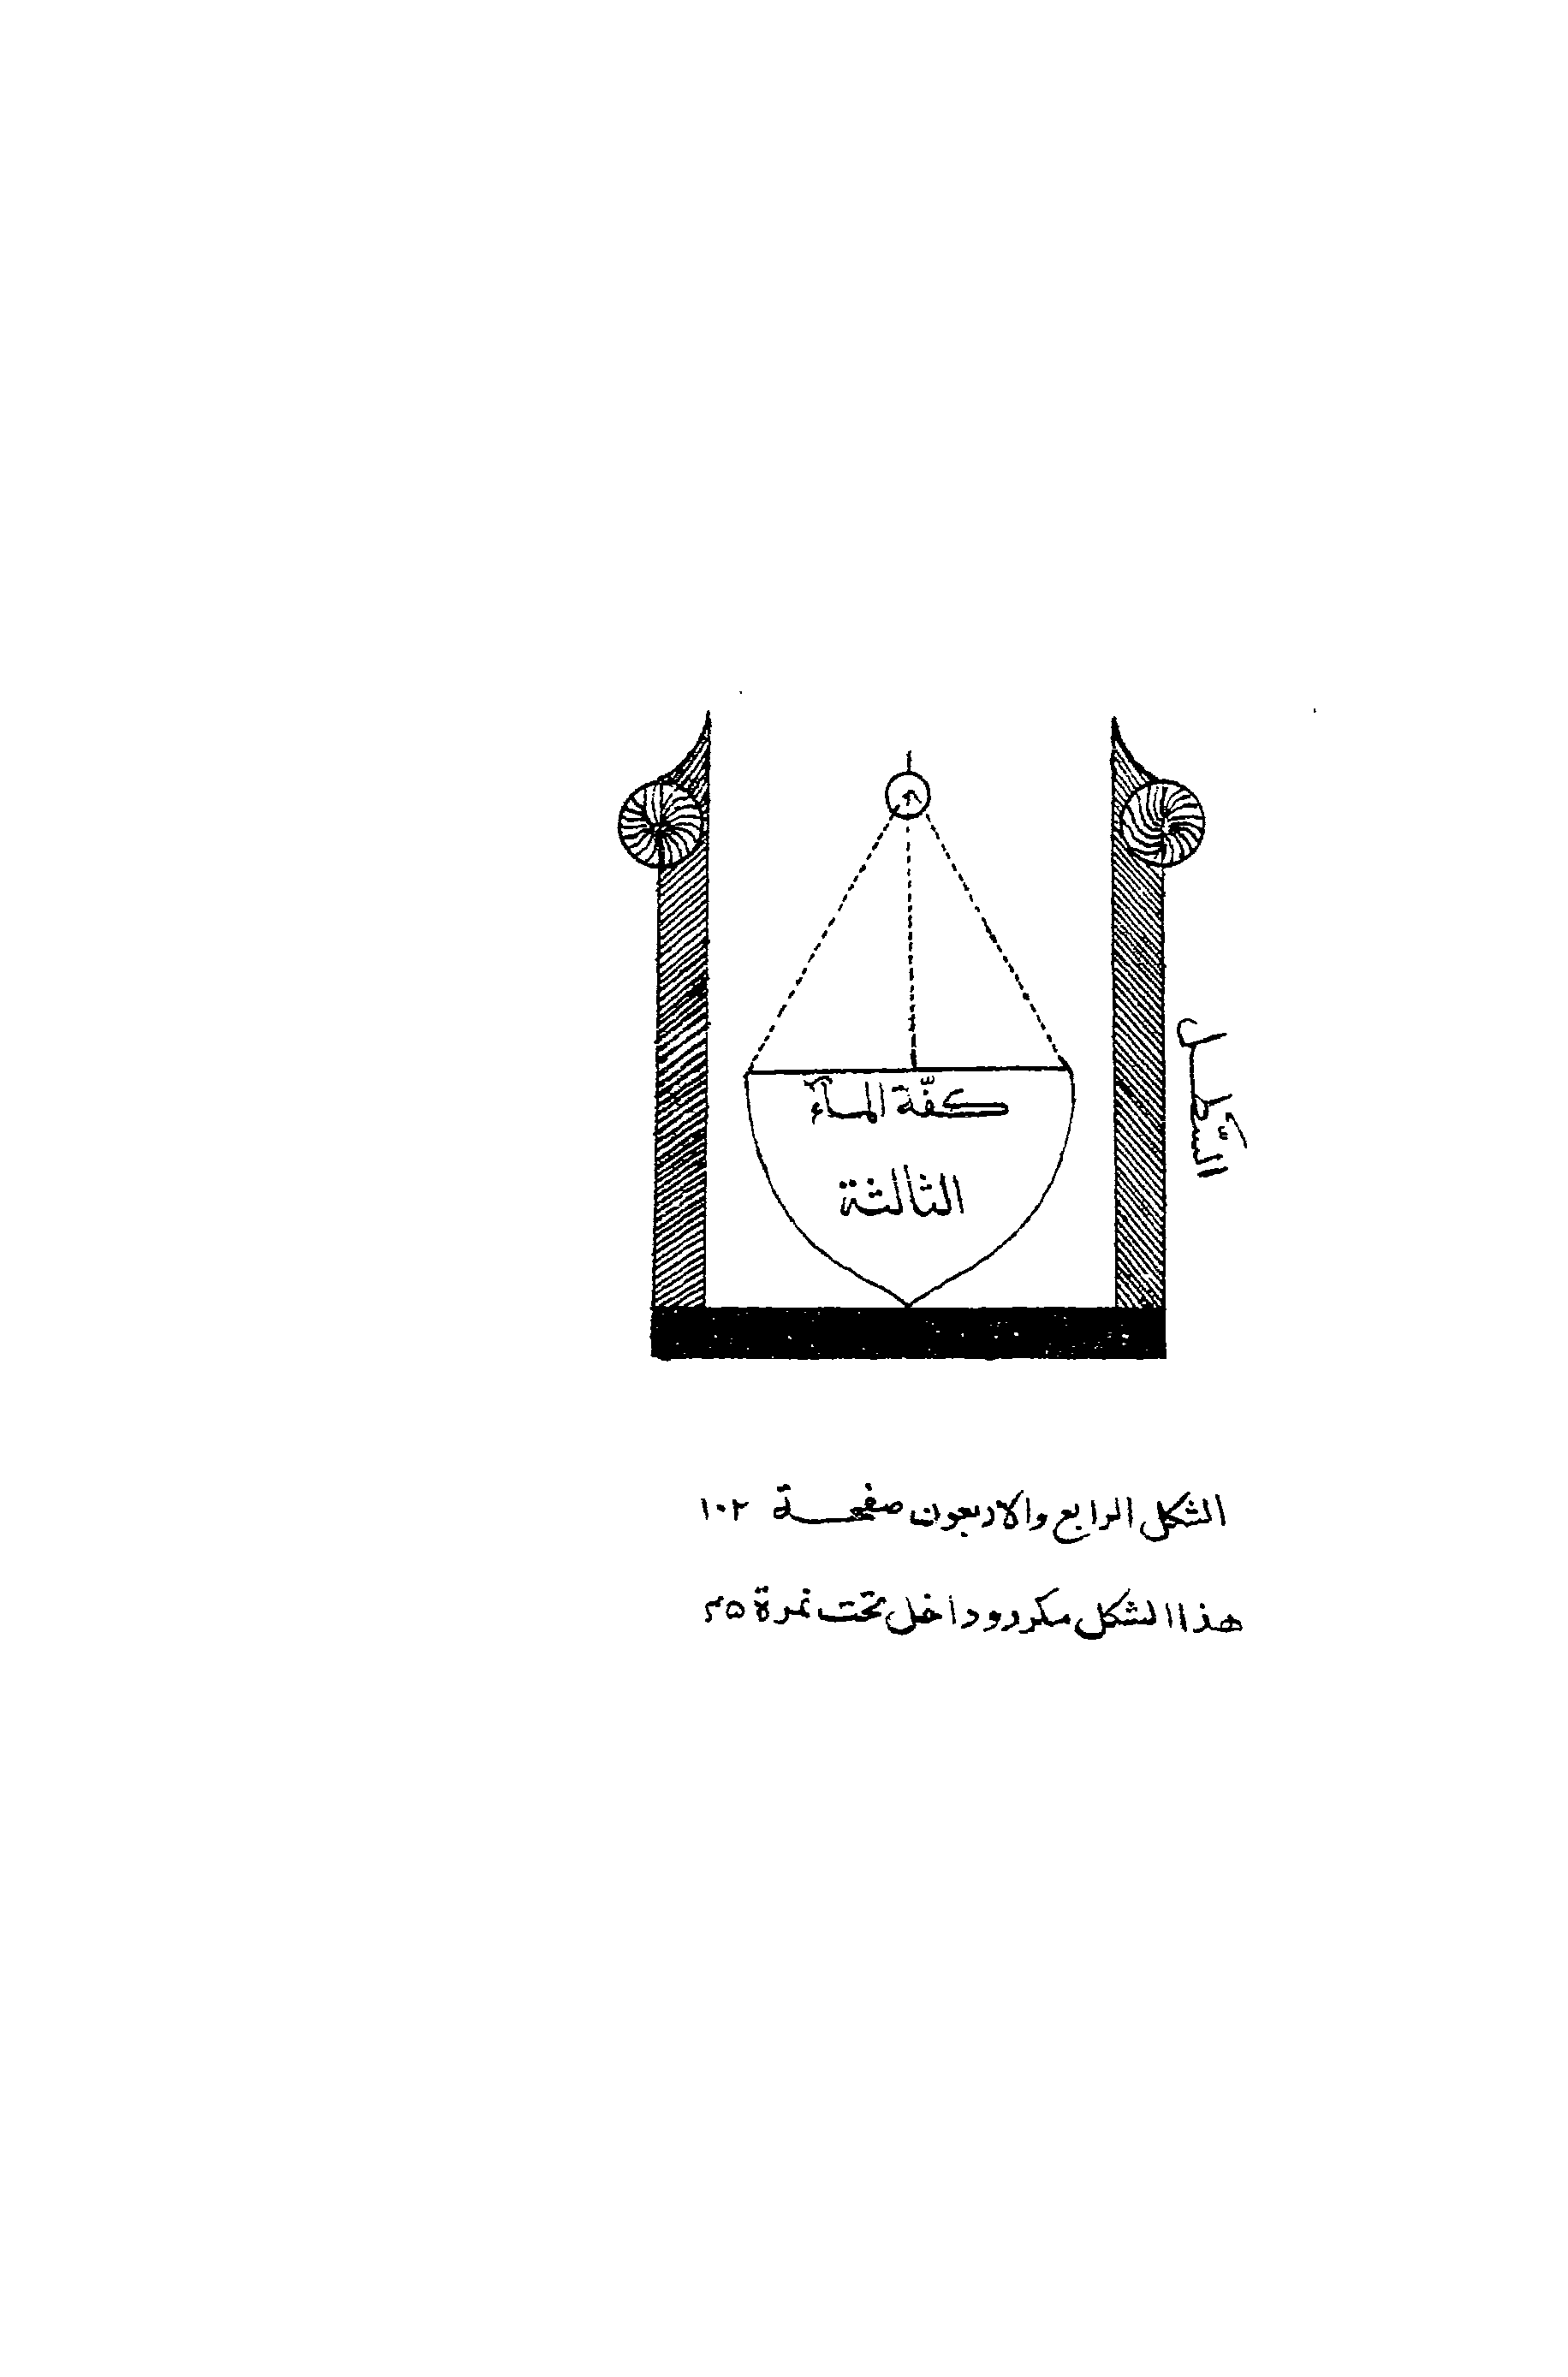 كفّة المآء
الثالثة
السّطل
الشكل الرابع والاربعون صفحة ١٠٢
هذا الشكل مكرر وداخل تحت نمرة